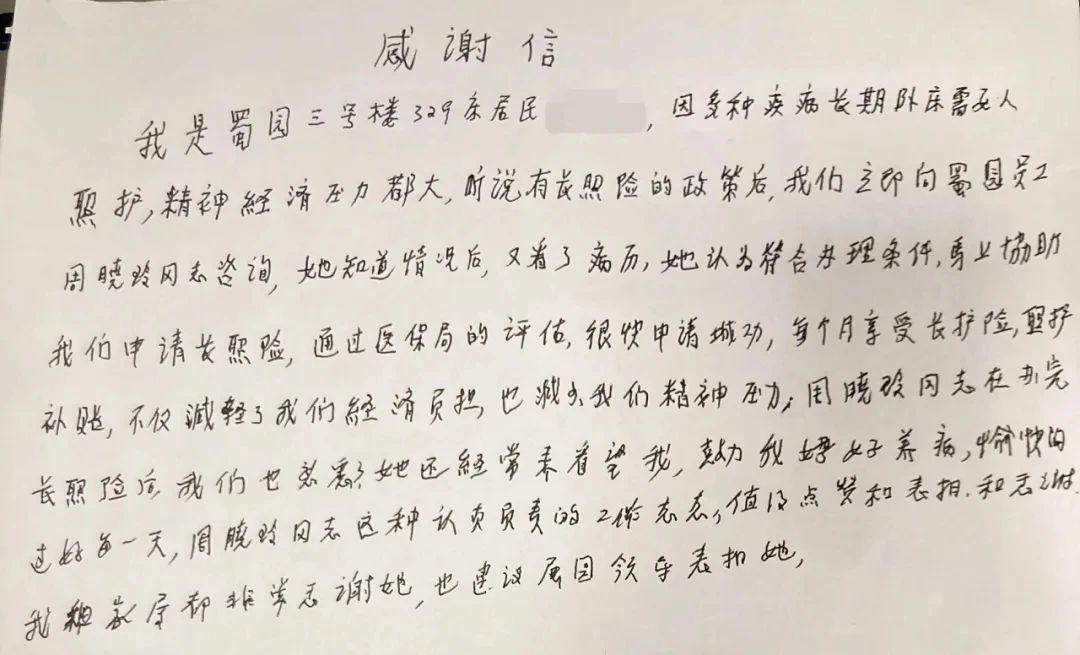 感谢信
我是蜀园三号楼329床居民，因多种疾病长期卧床需要人
照护，精神經済压力都大，听说有长照险的政策后，我们立即向蜀园员工
周曉玲同志咨询，她知道情况后，又看了病历，她认为符合办理条件，馬上協助
我们申请长照险，通过医保局的评估，很快申请成功，每个月享受长护险，照护
补贴，不仅減轻了我们經済负担，也減少我们精神压力；周曉玲同志在办完
长照险后我们也熟悉了她还經常来看望我，鼓励我好好养病，愉快的
过好每一天，周曉玲同志这种认真负责的工作态度，值得点赞和表揚，和感谢
我和家属都非常感谢她，也建议蜀园领导表扬她，